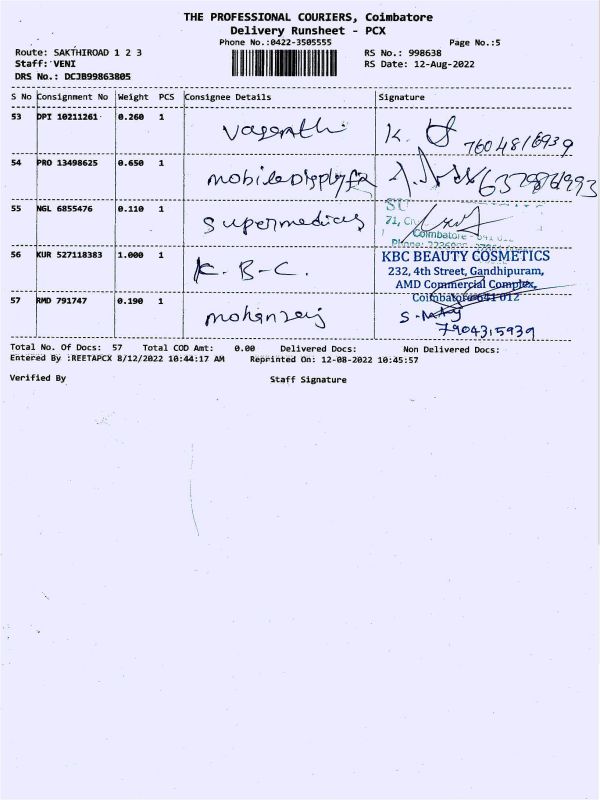 THE PROFESSIONAL COURIERS, Coimbatore
Delivery Runsheet - PCX
Phone No.:0422-3505555
Page No.:5
Route: SAKTHIROAD 1 2 3
RS No.: 998638
Staff: VENI
RS Date: 12-Aug-2022
DRS No.: DCJB99863805
S No Consignment No Weight PCS Consignee Details Signature
53 DPI 10211261 0.260 1 Vasanthi K. 7604816939
54 PRO 13498625 0.650 1 6379861993
55 NGL 6855476 0.110 1 Supermedicas
SU
71,
Coimbatore - 641
Phone:
56 KUR 527118383 1.000 1 K. B - C.
KBC BEAUTY COSMETICS
232, 4th Street, Gandhipuram,
AMD Commercial Complex,
Coimbatore-641 012
57 RMD 791747 0.190 1 mohanraj
7904315939
Total No. Of Docs: 57 Total COD Amt: 0.00 Delivered Docs: Non Delivered Docs:
Entered By :REETAPCX 8/12/2022 10:44:17 AM Reprinted On: 12-08-2022 10:45:57
Verified By Staff Signature